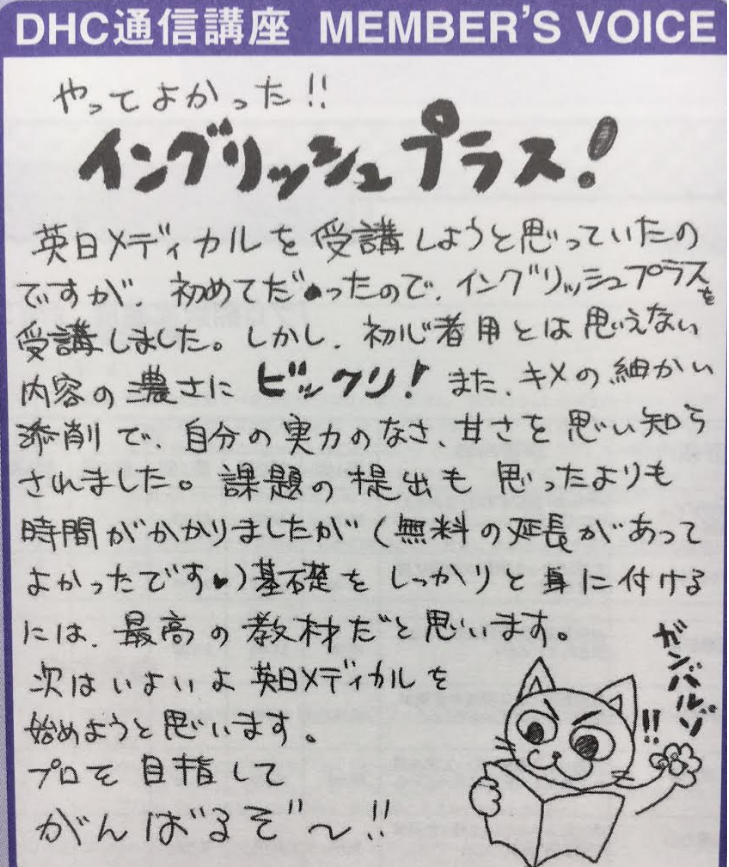 DHC通信講座 MEMBER'S VOICE
やってよかった!!
イングリッシュプラス!
英日メディカルを受講しようと思っていたの
ですが、初めてだったので、イングリッシュプラスを
受講しました。しかし、初心者用とは思えない
内容の濃さにビックリ! また、キメの細かい
添削で、自分の実力のなさ、甘さを思い知ら
されました。課題の提出も思ったよりも
時間がかかりましたが(無料の延長があって
よかったです♥)基礎をしっかりと身に付ける
には、最高の教材だと思います。
次はいよいよ英日メディカルを
始めようと思います。
プロを目指して
がんばるぞ〜!!
ガンバルゾ!!